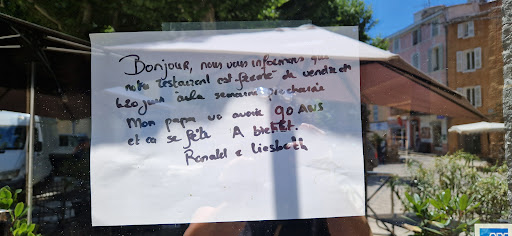 Bonjour, nous vous informons que
notre restaurant est fermé du vendredi
jusqu'à la semaine prochaine
Mon papa va avoir 90 ANS
et ça se fête. A bientôt.
Ronald & Liesbeth